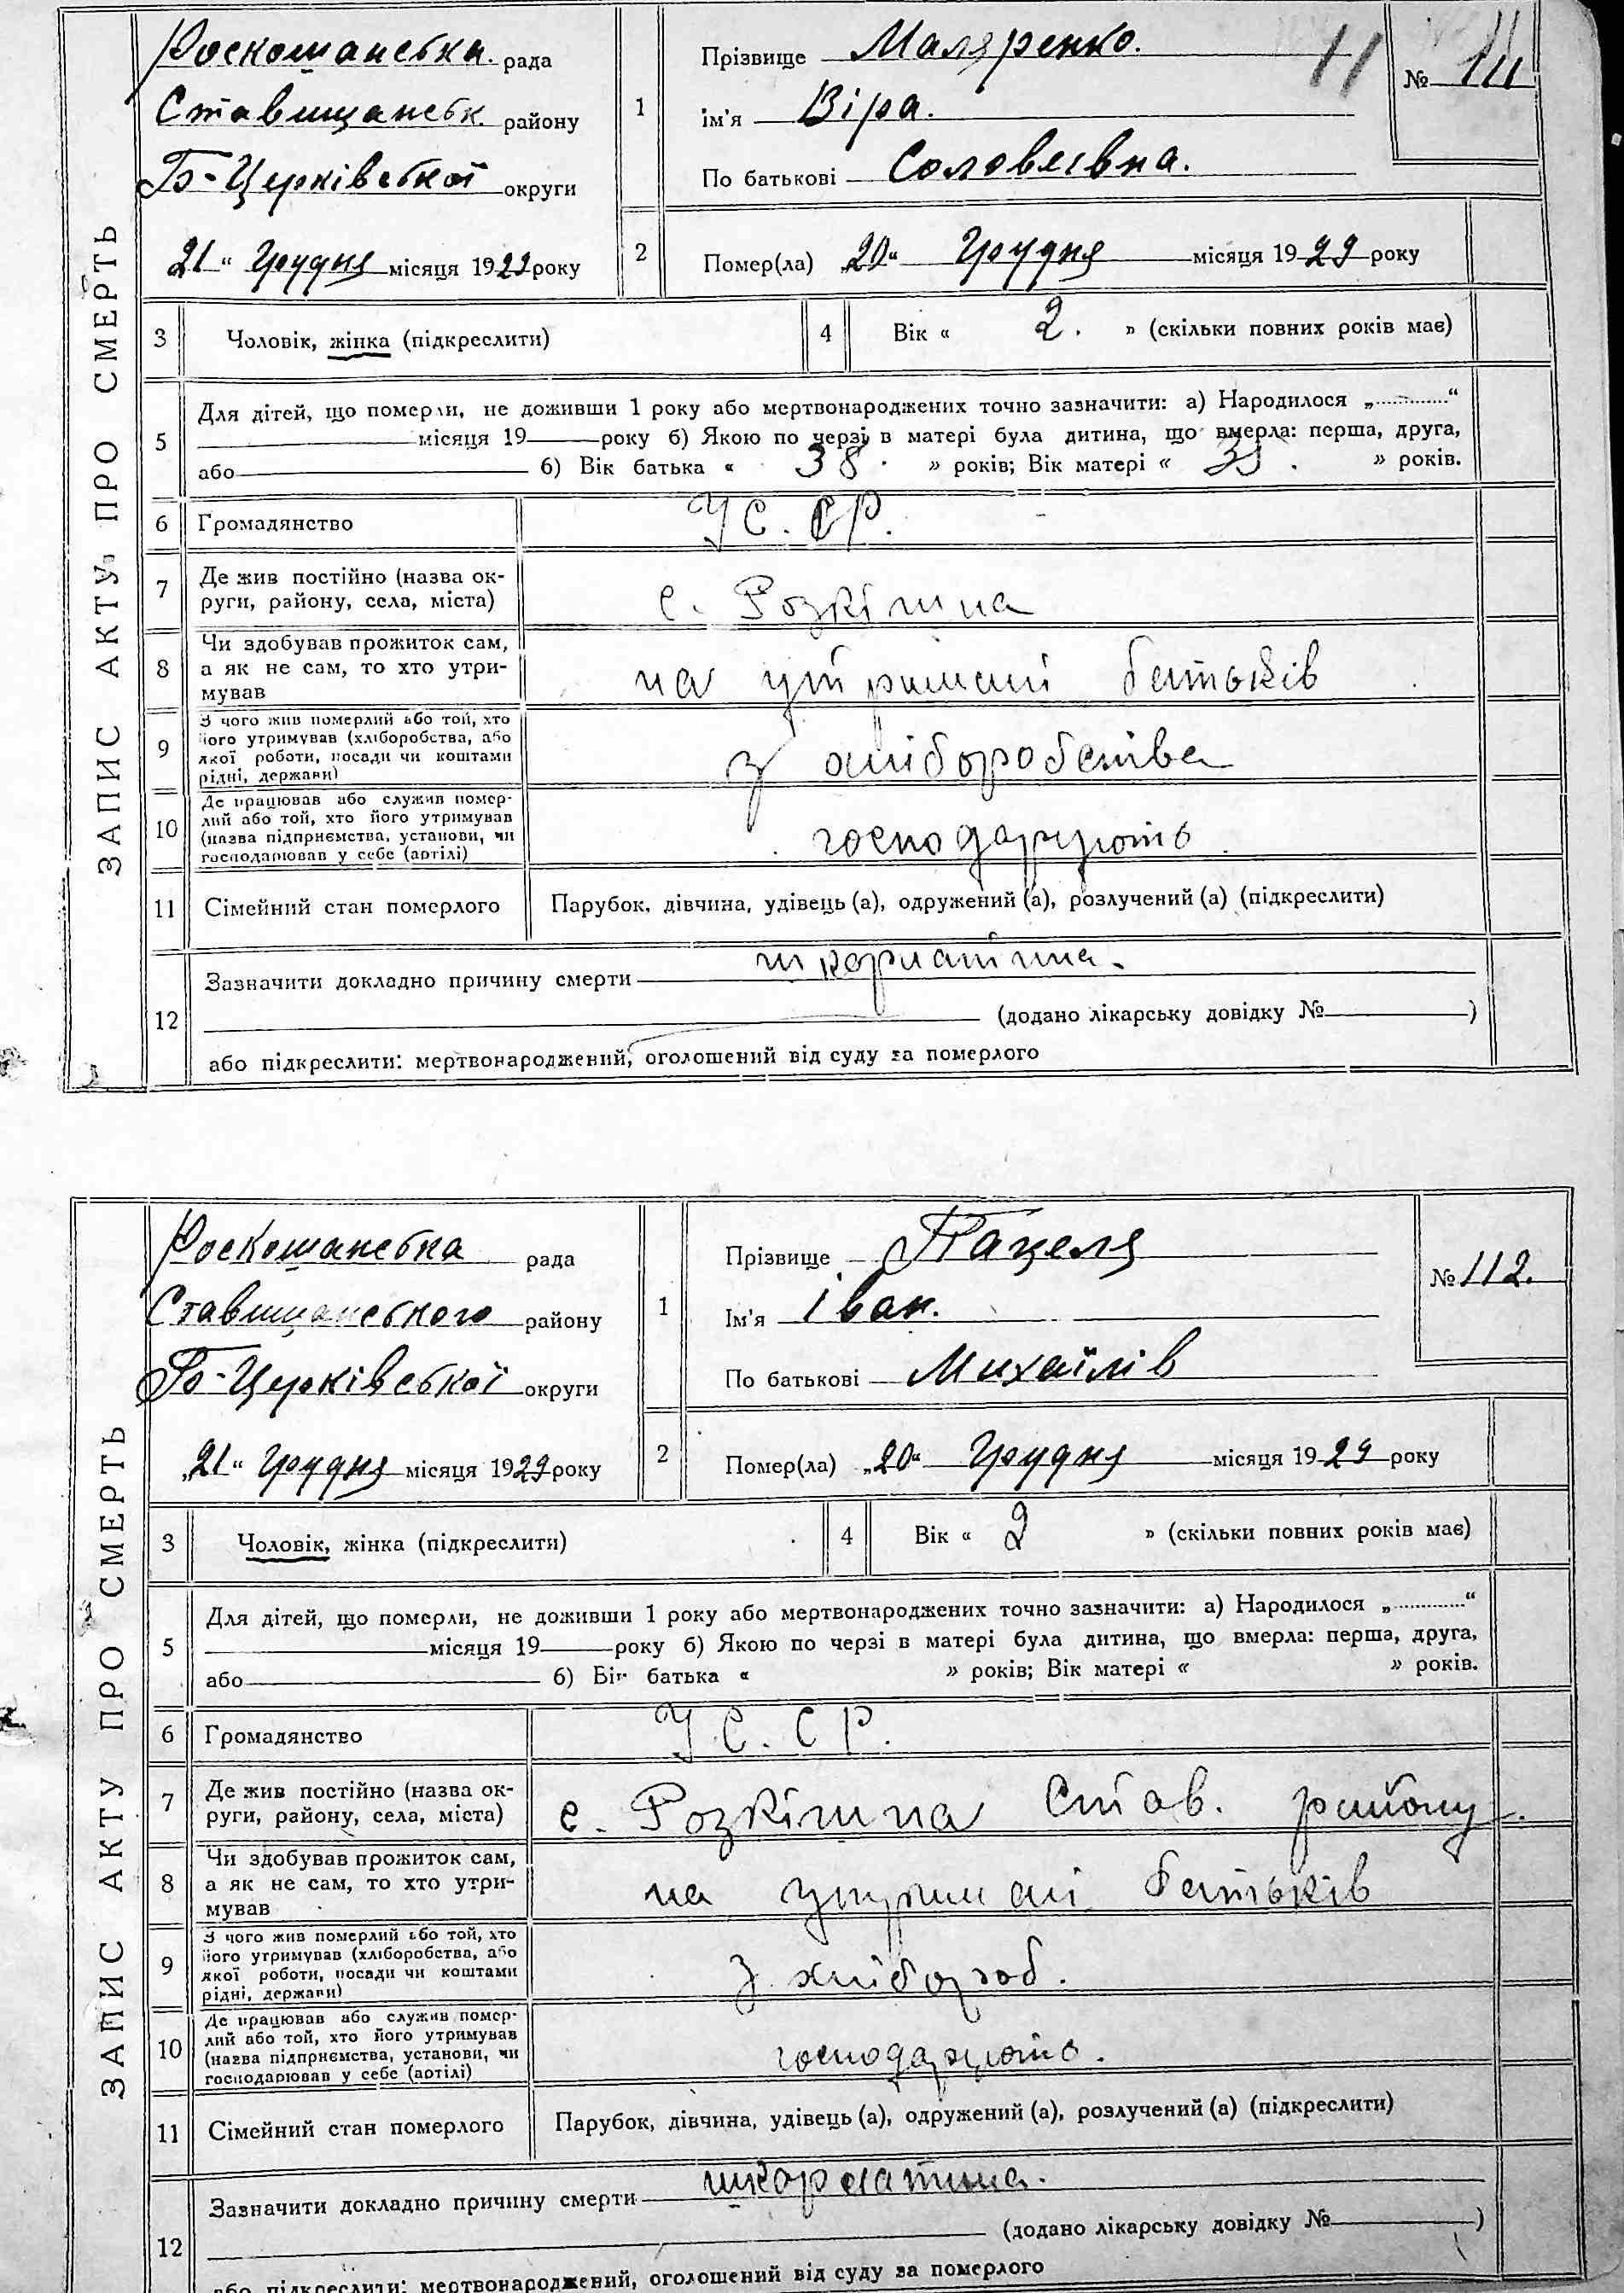 ЗАПИС АКТУ ПРО СМЕРТЬ
Роскошанська рада
Ставищанськ. району
Б-Церківської округи
21" Грудня місяця 1929 року
1
Прізвище Маляренко.
ім'я Віра.
По батькові Соловеівна.
11
№ 111
2
Помер(ла) „20" Грудня місяця 1929 року
3 Чоловік, жінка (підкреслити)
4 Вік « 2. » (скільки повних років має)
5 Для дітей, що померли, не доживши 1 року або мертвонароджених точно зазначити: а) Народилося „............"
місяця 19 року б) Якою по черзі в матері була дитина, що вмерла: перша, друга,
або б) Вік батька « 38. » років; Вік матері « » років.
6 Громадянство У С. С Р.
7 Де жив постійно (назва ок-
руги, району, села, міста) с. Розкішна
8 Чи здобував прожиток сам,
а як не сам, то хто утри-
мував на утриманні батьків
9 З чого жив померлий або той, хто
його утримував (хліборобства, або
якої роботи, посади чи коштами
рідні, держави) з хліборобства
10 Де працював або служив помер-
лий або той, хто його утримував
(назва підприємства, установи, чи
господарював у себе (артілі) господарують
11 Сімейний стан померлого Парубок, дівчина, удівець (а), одружений (а), розлучений (а) (підкреслити)
12 Зазначити докладно причину смерти шкорлатина.
(додано лікарську довідку № )
або підкреслити: мертвонароджений, оголошений від суду за померлого
ЗАПИС АКТУ ПРО СМЕРТЬ
Роскошанська рада
Ставищанського району
Б-Церківської округи
„21" Грудня місяця 1929 року
1
Прізвище Пацеля
Ім'я Іван.
По батькові Михаїлів
№ 112.
2
Помер(ла) „20" Грудня місяця 1929 року
3 Чоловік, жінка (підкреслити)
4 Вік « 2 » (скільки повних років має)
5 Для дітей, що померли, не доживши 1 року або мертвонароджених точно зазначити: а) Народилося „............"
місяця 19 року б) Якою по черзі в матері була дитина, що вмерла: перша, друга,
або б) Вік батька « » років; Вік матері « » років.
6 Громадянство У. С. С Р.
7 Де жив постійно (назва ок-
руги, району, села, міста) с. Розкішна Став. району.
8 Чи здобував прожиток сам,
а як не сам, то хто утри-
мував на утримані батьків
9 З чого жив померлий або той, хто
його утримував (хліборобства, або
якої роботи, посади чи коштами
рідні, держави) З хлібороб.
10 Де працював або служив помер-
лий або той, хто його утримував
(назва підприємства, установи, чи
господарював у себе (артілі) господарують.
11 Сімейний стан померлого Парубок, дівчина, удівець (а), одружений (а), розлучений (а) (підкреслити)
12 Зазначити докладно причину смерти шкорлатина.
(додано лікарську довідку № )
або підкреслити: мертвонароджений, оголошений від суду за померлого